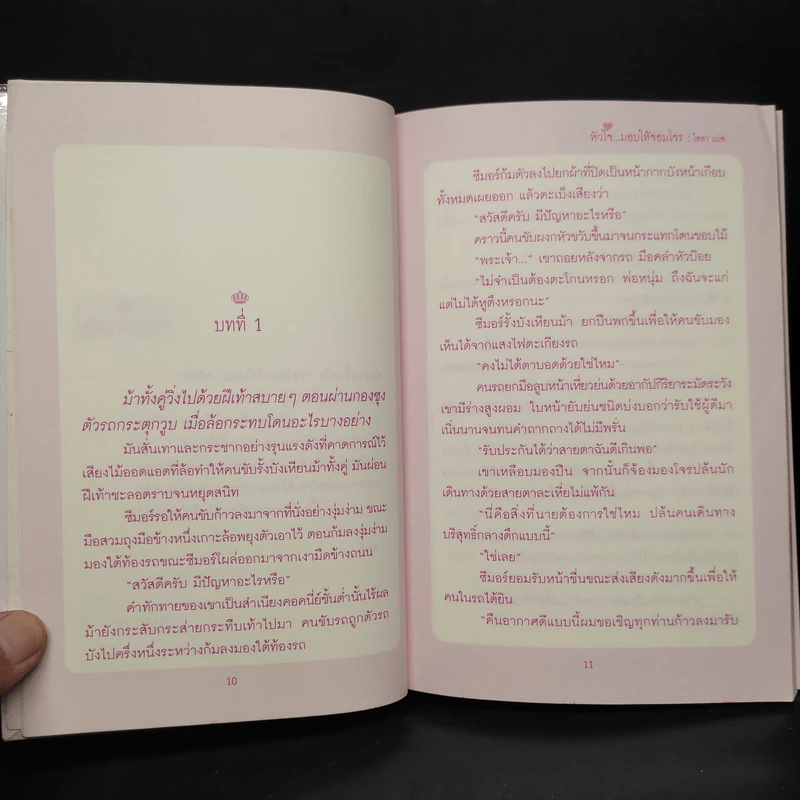 บทที่ 1
ม้าทั้งคู่วิ่งไปด้วยฝีเท้าสบายๆ ตอนผ่านกองซุง
ตัวรถกระตุกวูบ เมื่อล้อกระทบโดนอะไรบางอย่าง
มันสั่นเทาและกระชากอย่างรุนแรงดังที่คาดการณ์ไว้
เสียงไม้ออดแอดที่ล้อทำให้คนขับรั้งบังเหียนม้าทั้งคู่ มันผ่อน
ฝีเท้าชะลอตราบจนหยุดสนิท
ซีมอร์รอให้คนขับก้าวลงมาจากที่นั่งอย่างงุ่มง่าม ขณะ
มือสวมถุงมือข้างหนึ่งเกาะล้อพยุงตัวเอาไว้ ตอนก้มลงงุ่มง่าม
มองใต้ท้องรถขณะซีมอร์โผล่ออกมาจากเงามืดข้างถนน
“สวัสดีครับ มีปัญหาอะไรหรือ”
คำทักทายของเขาเป็นสำเนียงคอคนี่ย์ชั้นต่ำนั้นไร้ผล
ม้ายังกระสับกระส่ายกระทืบเท้าไปมา คนขับรถถูกตัวรถ
บังไปครึ่งหนึ่งระหว่างก้มลงมองใต้ท้องรถ
10
หัวใจ...มอบให้จอมโจร :
ซีมอร์ก้มตัวลงไปยกผ้าที่ปิดเป็นหน้ากากบังหน้าเกือบ
ทั้งหมดเผยออก แล้วตะเบ็งเสียงว่า
“สวัสดีครับ มีปัญหาอะไรหรือ”
คราวนี้คนขับผงกหัวขวับขึ้นมาจนกระแทกโดนขอบไม้
“พระเจ้า...” เขาถอยหลังจากรถ มือคลำหัวป้อย
“ไม่จำเป็นต้องตะโกนหรอก พ่อหนุ่ม ถึงฉันจะแก่
แต่ไม่ได้หูตึงหรอกนะ”
ซีมอร์รั้งบังเหียนม้า ยกปืนพกขึ้นเพื่อให้คนขับมอง
เห็นได้จากแสงไฟตะเกียงรถ
“คงไม่ได้ตาบอดด้วยใช่ไหม”
คนรถยกมือลูบหน้าเหี่ยวย่นด้วยอากัปกิริยาระมัดระวัง
เขามีร่างสูงผอม ใบหน้ายับย่นชนิดบ่งบอกว่ารับใช้ผู้ดีมา
เนิ่นนานจนทนคำถากถางได้ไม่มีพรั่น
“รับประกันได้ว่าสายตาฉันดีเกินพอ”
เขาเหลือบมองปืน จากนั้นก็จ้องมองโจรปล้นนัก
เดินทางด้วยสายตาละเหี่ยไม่แพ้กัน
“นี่คือสิ่งที่นายต้องการใช่ไหม ปล้นคนเดินทาง
บริสุทธิ์กลางดึกแบบนี้”
“ใช่เลย”
ซีมอร์ยอมรับหน้าชื่นขณะส่งเสียงดังมากขึ้นเพื่อให้
คนในรถได้ยิน
“คืนอากาศดีแบบนี้ผมขอเชิญทุกท่านก้าวลงมารับ
11